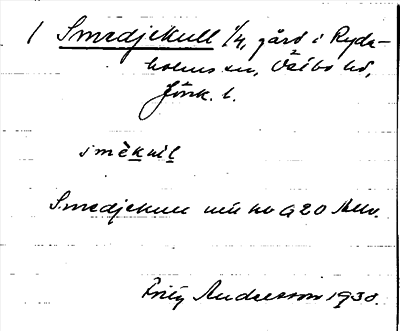 1 Smedjekull 1/4, gård i Ryds-
holms sn, Östbo hd,
Jönk. l.
smèkul
Smedjekull
Fritz Andersson 1938.